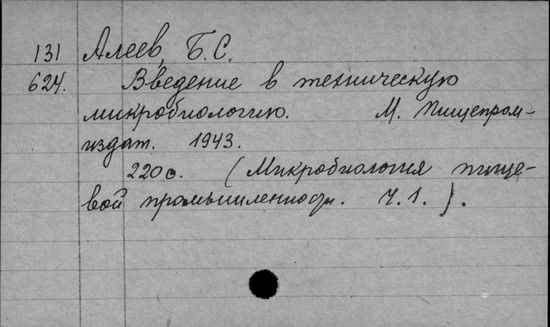 131 Алеев, Б.С.
624. Введение в техническую
микробиологию. М. Пищепром-
издат. 1943.
220с. (Микробиология пище-
вой промышленности. Ч.1.).